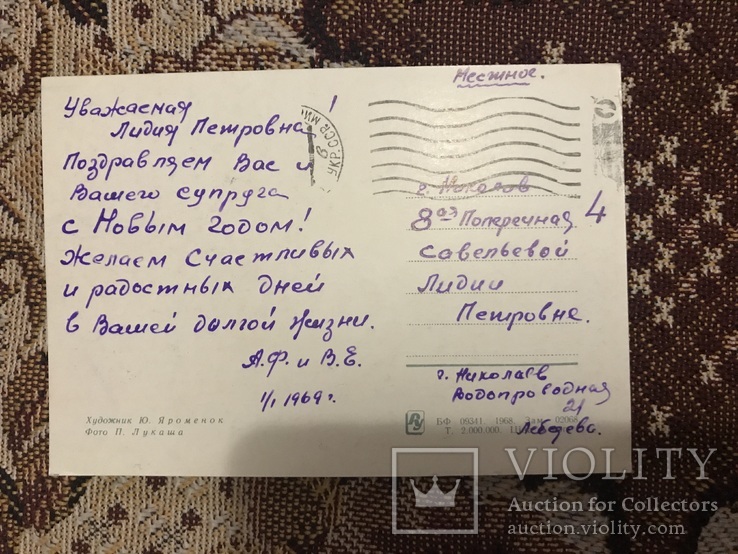 Местное.
Уважаемая
Лидия Петровна!
Поздравляем Вас и
Вашего супруга
с Новым годом!
Желаем Счастливых
и радостных дней
в Вашей долгой жизни.
А.Ф. и В.Е.
1/I 1969 г.
Художник Ю. Яроменок
Фото П. Лукаша
УКР.ССР
г. Николаев
8ая Поперечная 4
Савельевой
Лидии
Петровне.
г. Николаев
Водопроводная
21
Лебедева.
БФ 09341. 1968. Зам. 02068
Т. 2.000.000.
VIOLITY
Auction for Collectors
auction.violity.com